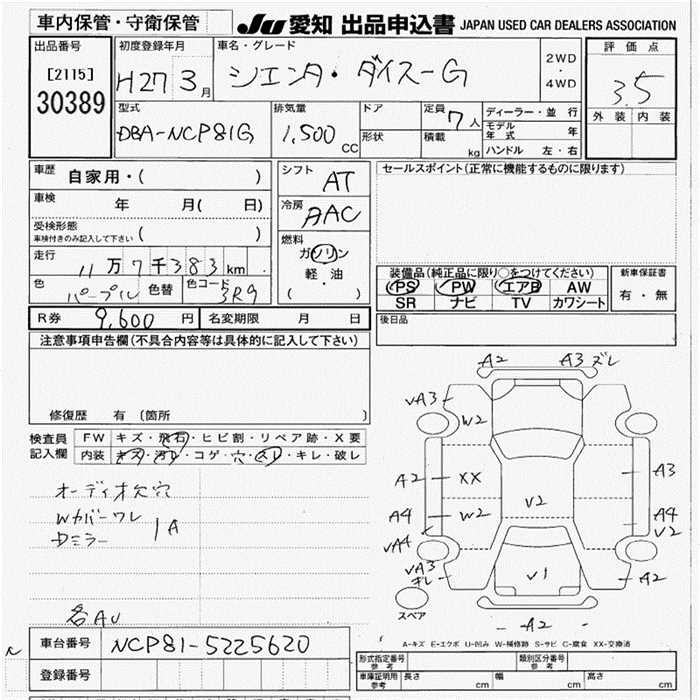 車内保管・守衛保管
JU 愛知 出品申込書 JAPAN USED CAR DEALERS ASSOCIATION
出品番号
[2115]
30389
初度登録年月
H27 3月
車名・グレード
シエンタ・ダイスーG
2WD
・
4WD
評価点
3.5
外装 内装
型式
DBA-NCP81G
排気量
1,500 CC
ドア
形状
定員 7人
積載 kg
ディーラー・並行
モデル年式 年
ハンドル 左・右
車歴 自家用・( )
車検 年 月( 日)
受検形態
車検付きのみ記入して下さい ( )
走行 11万7千383km
色 パープル 色替 色コード 3R9
シフト AT
冷房 AAC
燃料
ガソリン
・
軽・油
( )
セールスポイント(正常に機能するものに限ります)
装備品(純正品に限り○をつけてください)
PS PW エアB AW
SR ナビ TV カワシート
新車保証書
有・無
R券 9,600円 名変期限 月 日
後日品
注意事項申告欄(不具合内容等は具体的に記入して下さい)
修復歴 有 [箇所 ]
検査員記入欄
FW キズ・飛石・ヒビ割・リペア跡・X要
内装 キズ・汚レ・コゲ・穴・スレ・キレ・破レ
オーディオ欠穴
Wカバーワレ
Dミラー 1A
各AU
A2 A3 ズレ
VA3 W2
A2 XX A3
V2
A4 W2 A4
V2
VA4
VA3
キレ
V1 A2
スペア
A2
A-キズ E-エクボ U-凹み W-補修跡 S-サビ C-腐食 XX-交換済
車台番号 NCP81-5225620
登録番号
形式指定番号 参考 類別区分番号 参考
車庫証明用 参考 長さ cm 幅 cm 高さ cm